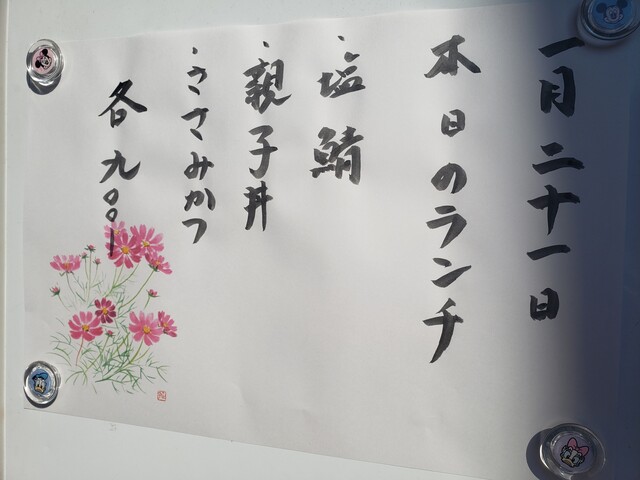 一月二十一日
本日のランチ
・塩鯖
・親子丼
・ささみかつ
各九〇〇-